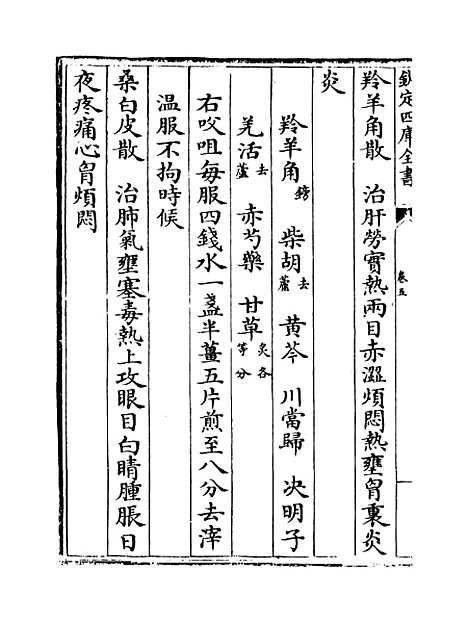 欽定四庫全書
卷五
羚羊角散　治肝勞實熱兩目赤澀煩悶熱壅胷裏炎
炎
羚羊角鎊　柴胡去蘆　黄芩　川當歸　决明子
羌活去蘆　赤芍藥　甘草炙各等分
右㕮咀每服四錢水一盞半薑五片煎至八分去滓
温服不拘時候
桑白皮散　治肺氣壅塞毒熱上攻眼目白睛腫脹日
夜疼痛心胷煩悶